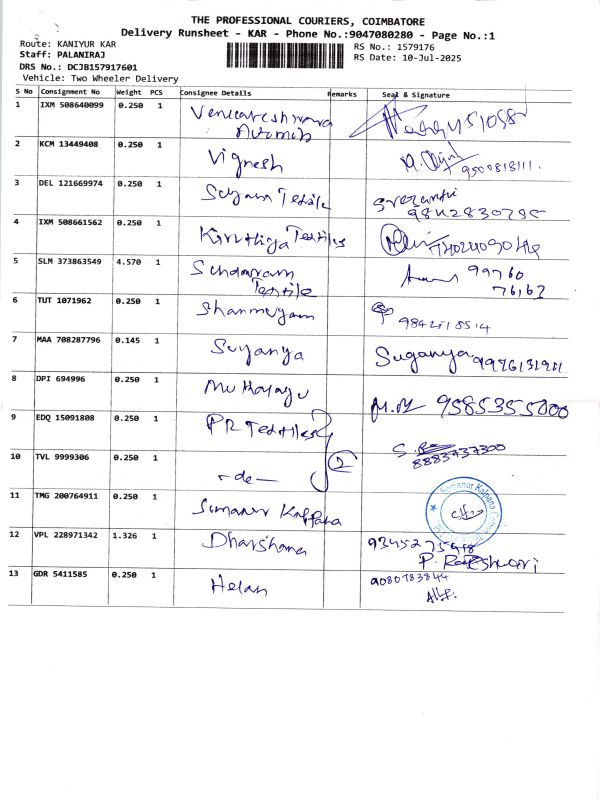 THE PROFESSIONAL COURIERS, COIMBATORE
Delivery Runsheet - KAR - Phone No.:9047080280 - Page No.:1
Route: KANIYUR KAR
RS No.: 1579176
Staff: PALANIRAJ
RS Date: 10-Jul-2025
DRS No.: DCJB157917601
Vehicle: Two Wheeler Delivery
S No Consignment No Weight PCS Consignee Details Remarks Seal & Signature
1 IXM 508640099 0.250 1
2 KCM 13449408 0.250 1 Vignesh 9500818111.
3 DEL 121669974 0.250 1 Textile
9842830795
4 IXM 508661562 0.250 1 Kiruthiga Textiles
5 SLM 373863549 4.570 1 Sundaram 99760
Textile 76163
6 TUT 1071962 0.250 1 Shanmugam
7 MAA 708287796 0.145 1 Suganya Suganya
8 DPI 694996 0.250 1 9585355000
9 EDQ 15091808 0.250 1 PR Textiles
8883737300
10 TVL 9999306 0.250 1 - do - 2
11 TMG 200764911 0.250 1 Somanur Kalpana
12 VPL 228971342 1.326 1 Dharshana
P. Rajeshwari
13 GDR 5411585 0.250 1 Helan 9080783844